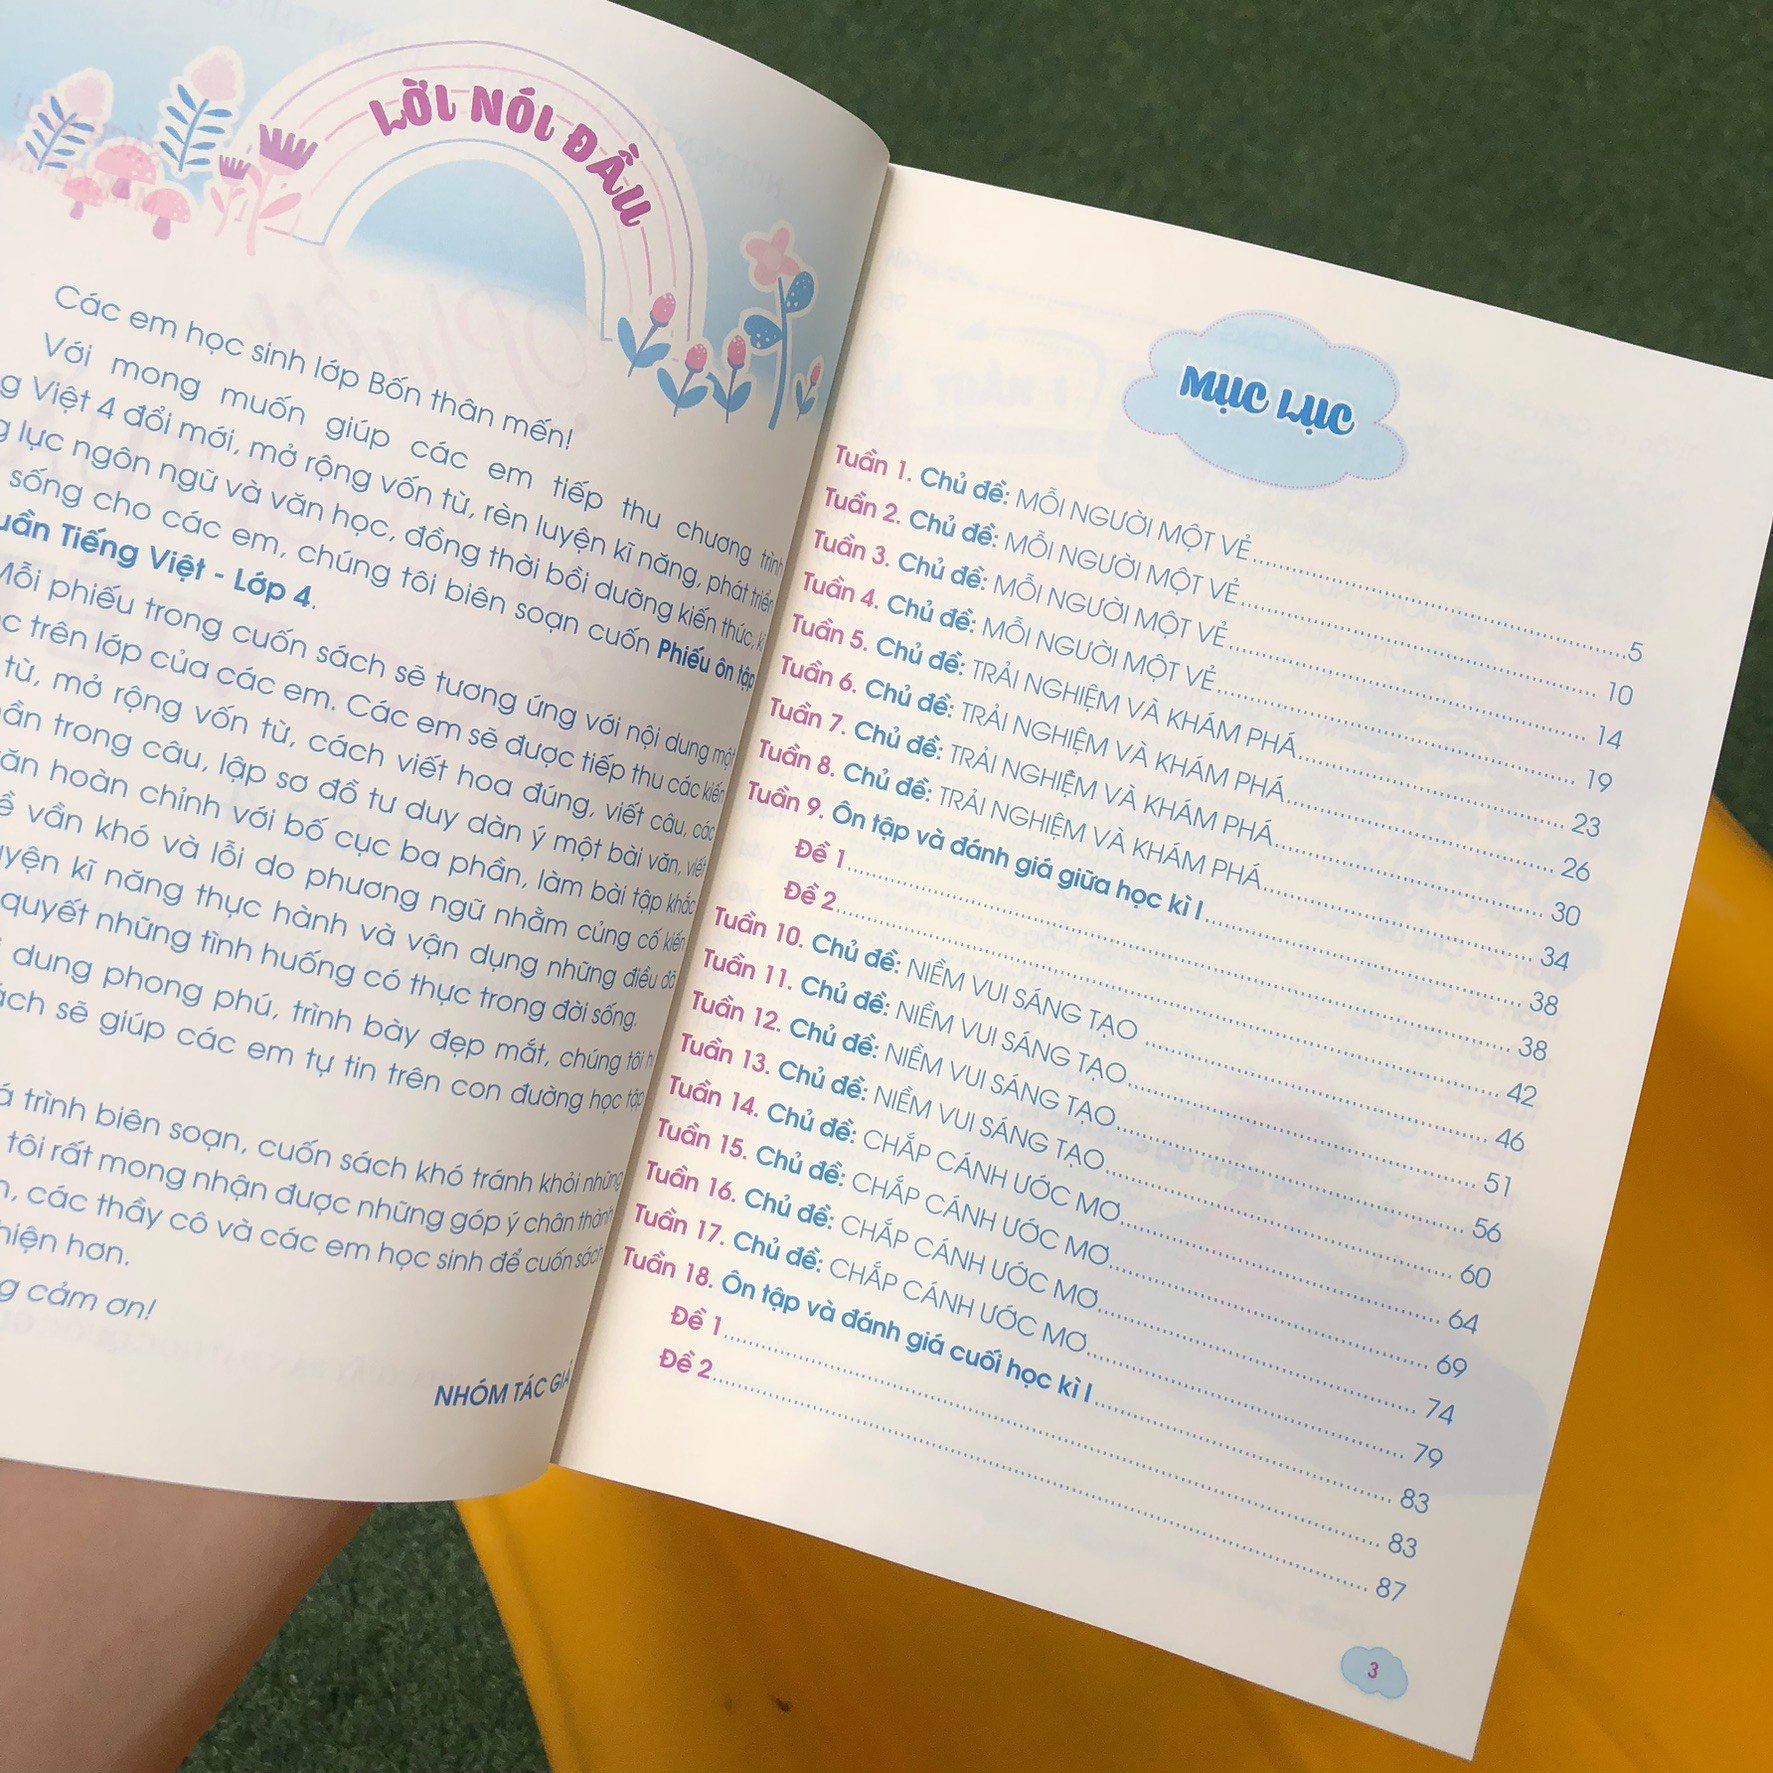 LỜI NÓI ĐẦU
Các em học sinh lớp Bốn thân mến!
Với mong muốn giúp các em tiếp thu chương trình
Việt 4 đổi mới, mở rộng vốn từ, rèn luyện kĩ năng, phát triển
lực ngôn ngữ và văn học, đồng thời bồi dưỡng kiến thức,
sống cho các em, chúng tôi biên soạn cuốn Phiếu ôn tập
Tiếng Việt - Lớp 4.
Mỗi phiếu trong cuốn sách sẽ tương ứng với nội dung một
trên lớp của các em. Các em sẽ được tiếp thu các kiến
từ, mở rộng vốn từ, cách viết hoa đúng, viết câu, các
trong câu, lập sơ đồ tư duy dàn ý một bài văn, viết
hoàn chỉnh với bố cục ba phần, làm bài tập khắc
vần khó và lỗi do phương ngữ nhằm củng cố kiến
kĩ năng thực hành và vận dụng những điều đã
quyết những tình huống có thực trong đời sống.
dung phong phú, trình bày đẹp mắt, chúng tôi
sẽ giúp các em tự tin trên con đường học tập
trình biên soạn, cuốn sách khó tránh khỏi những
tôi rất mong nhận được những góp ý chân thành
các thầy cô và các em học sinh để cuốn sách
hơn.
cảm ơn!
NHÓM TÁC GIẢ
MỤC LỤC
Tuần 1. Chủ đề: MỖI NGƯỜI MỘT VẺ 5
Tuần 2. Chủ đề: MỖI NGƯỜI MỘT VẺ 10
Tuần 3. Chủ đề: MỖI NGƯỜI MỘT VẺ 14
Tuần 4. Chủ đề: MỖI NGƯỜI MỘT VẺ 19
Tuần 5. Chủ đề: TRẢI NGHIỆM VÀ KHÁM PHÁ 23
Tuần 6. Chủ đề: TRẢI NGHIỆM VÀ KHÁM PHÁ 26
Tuần 7. Chủ đề: TRẢI NGHIỆM VÀ KHÁM PHÁ 30
Tuần 8. Chủ đề: TRẢI NGHIỆM VÀ KHÁM PHÁ 34
Tuần 9. Ôn tập và đánh giá giữa học kì I 38
Đề 1 38
Đề 2 42
Tuần 10. Chủ đề: NIỀM VUI SÁNG TẠO 46
Tuần 11. Chủ đề: NIỀM VUI SÁNG TẠO 51
Tuần 12. Chủ đề: NIỀM VUI SÁNG TẠO 56
Tuần 13. Chủ đề: NIỀM VUI SÁNG TẠO 60
Tuần 14. Chủ đề: CHẮP CÁNH ƯỚC MƠ 64
Tuần 15. Chủ đề: CHẮP CÁNH ƯỚC MƠ 69
Tuần 16. Chủ đề: CHẮP CÁNH ƯỚC MƠ 74
Tuần 17. Chủ đề: CHẮP CÁNH ƯỚC MƠ 79
Tuần 18. Ôn tập và đánh giá cuối học kì I 83
Đề 1 83
Đề 2 87
3